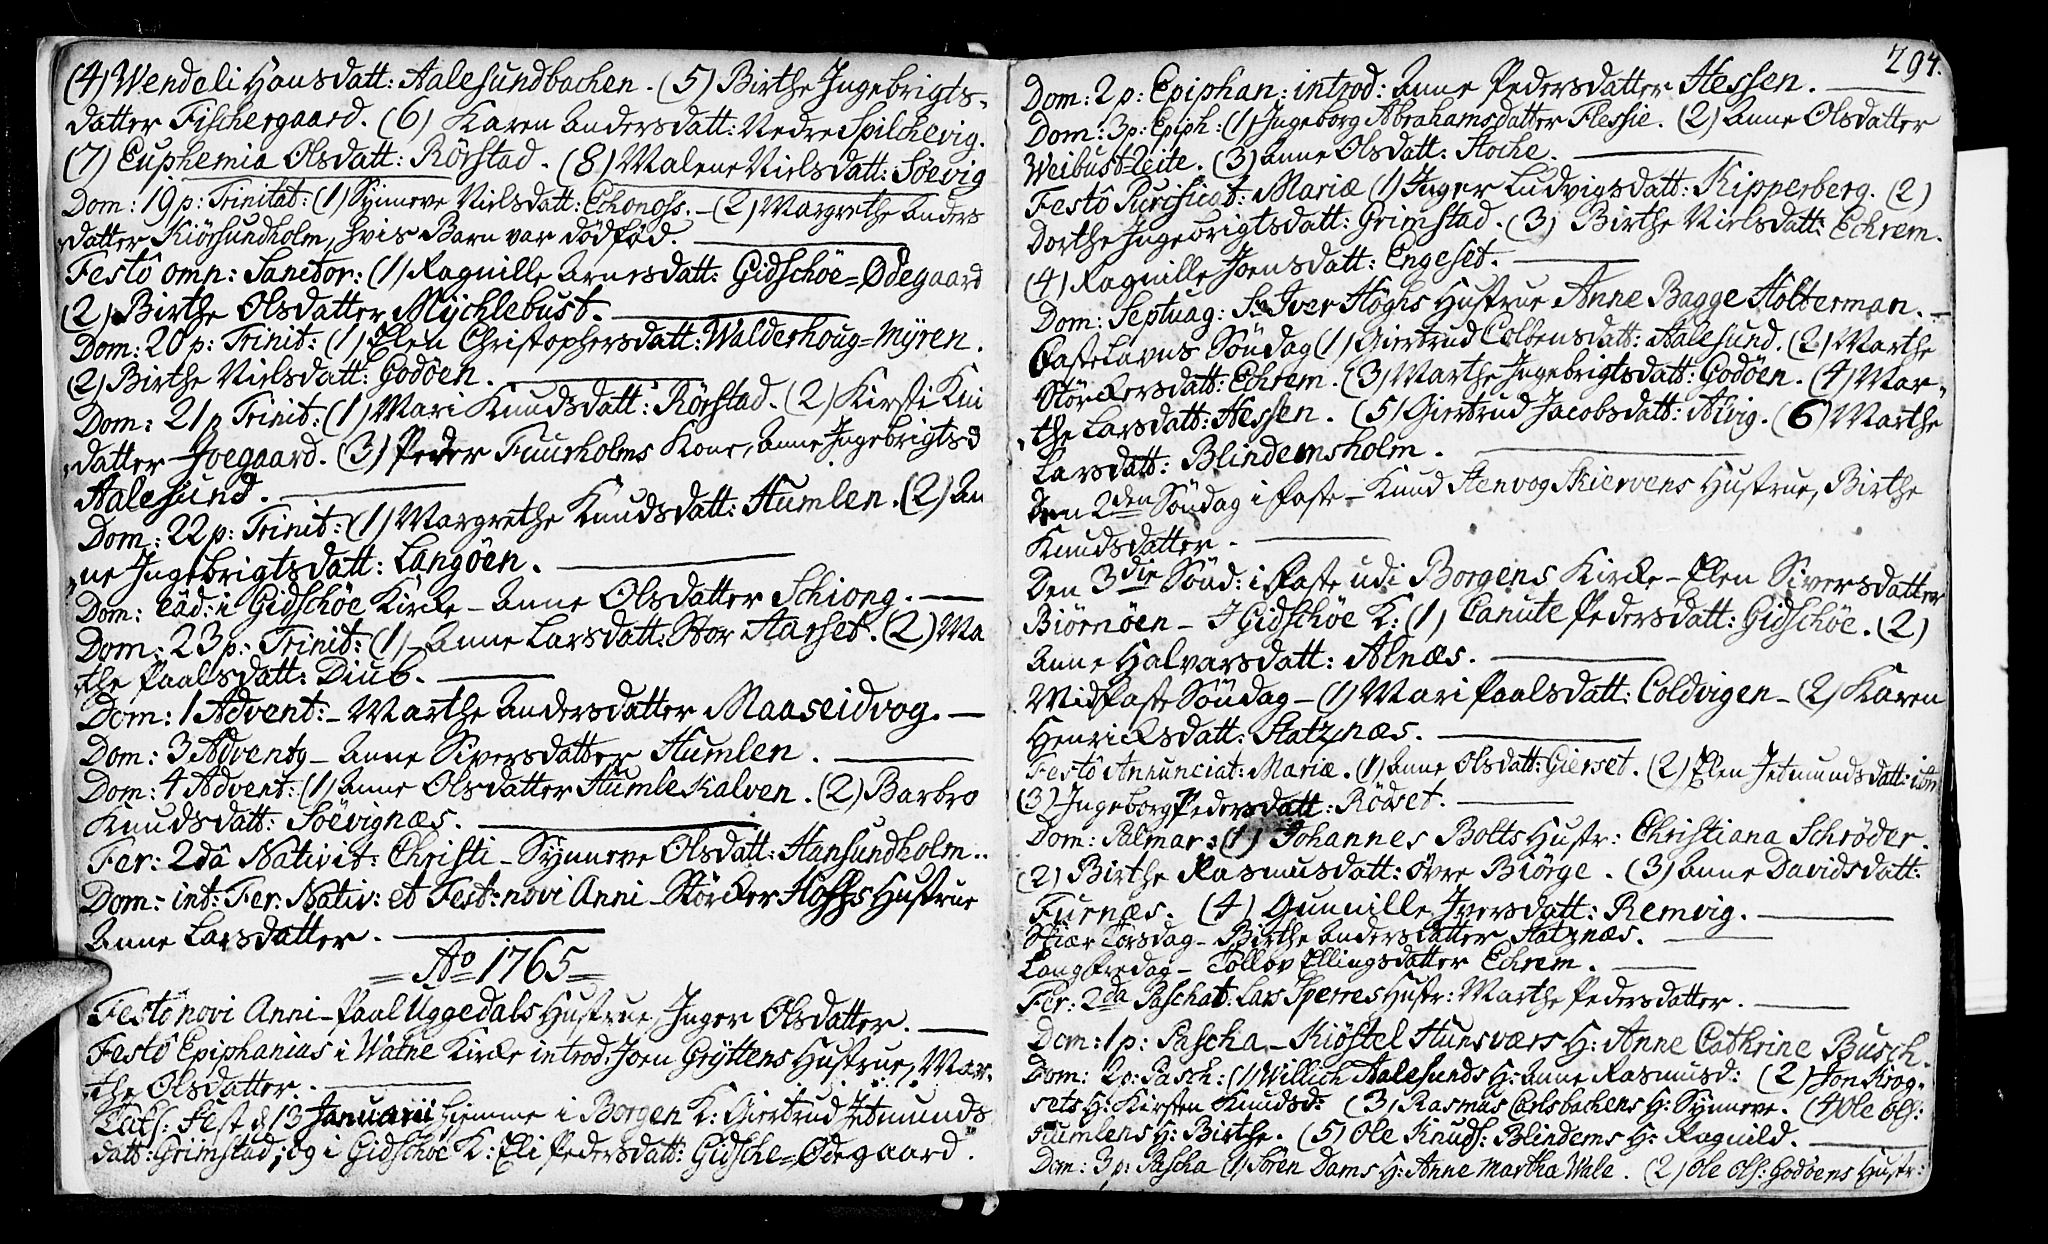 (4) Wendeli Hansdatt: Aalesundbachen. (5) Birthe Ingebrigts-
datter Fischergaard. (6) Karen Andersdatt: Nedre Spilchevig.
(7) Euphemia Olsdatt: Rörstad. (8) Malene Nielsdatt: Söevig
Dom: 19 p: Trinitat: (1) Synneve Nielsdatt: Echonoss. – (2) Margrethe Anders
datter Kiörsundholm, hvis Barn var dödföd.
Festô omn: Sanctor: (1) Ragnille Arnesdatt: Gidschöe=Ødegaard
(2) Birthe Olsdatter Mÿchlebust.
Dom: 20 p: Trinit: (1) Elen Christophersdatt: Walderhoug=Mÿren.
(2) Birthe Nielsdatt: Godöen.
Dom: 21 p Trinit: (1) Mari Knudsdatt: Rörstad. (2) Kirsti Knu
datter Joegaard. (3) Peder Fuurholms Kone, Anne Ingebrigtsd
Aalesund.
Dom: 22 p: Trinit: (1) Margrethe Knudsdatt: Humlen. (2) An
ne Ingebrigtsdatt: Langöen.
Dom: eâd: i Gidschöe Kirke – Anne Olsdatter Schiong.
Dom: 23 p: Trinit: (1) Anne Larsdatt: Stor Aarset. (2) Ma
the Paalsdatt: Diub.
Dom: 1 Advent: – Marthe Andersdatter Maaseidvog.
Dom: 3 Adventq – Anne Siversdatter Humlen.
Dom: 4 Advent: (1) Anne Olsdatter Humlekalven. (2) Barbro
Knudsdatt: Söevignæs.
Fer: 2dâ Nativit: Christi – Synneve Olsdatt: Hansundholm..
Dom: int: Fer: Nativ: et Fest: novi Anni – Störcker Hoffs Hustrue
Anne Larsdatter.
= Ao 1765 =
Festô novi Anni – Paal Uggedals Hustrue, Inger Olsdatter.
Festô Epiphanias i Watne Kirke introd: Joen Grÿttens Hustrue, Mar-
the Olsdatter.
Fest d 13 Januarii hiemme i Borgen K: Giertrud Jetmunds
datt: Grimstad, og i Gidschöe K: Eli Pedersdatt: Gidsche=Ødegaard.
294.
Dom: 2 p: Epiphan: introd: Anne Pedersdatter Hessen.
Dom: 3 p: Epiph: (1) Ingeborg Abrahamsdatter Flessie. (2) Anne Olsdatter
Weibust=Leite. (3) Anne Olsdatt: Stoche.
Festô Purificat: Mariæ (1) Inger Ludvigsdatt: Kipperberg. (2)
Dorthe Ingebrigtsdatt: Grimstad. (3) Birthe Nielsdatt: Echrem.
(4) Ragnille Joensdatt: Engeset.
Dom: Septuag: Sr Iver Höghs Hustrue Anne Bagge Holterman. –
Fastelavns Söndag (1) Giertrud Colbensdatt: Aalesund. (2) Marthe
Störckersdatt: Echrem. (3) Marthe Ingebrigtsdatt: Godöen. (4) Mar-
the Larsdatt: Hessen. (5) Giertrud Jacobsdatt: Alvig. (6) Marthe
Larsdatt: Blindemsholm.
Den 2den Söndag i Faste – Knud Stenvog Skiervens Hustrue, Birthe
Knudsdatter.
Den 3die Sönd: i Faste udi Borgens Kirke – Elen Siversdatter
Biörnöen – I Gidschöe K: (1) Canute Pedersdatt: Gidschöe. (2)
Anne Halvarsdatt: Alnæs.
Midfaste Söndag – (1) Mari Paalsdatt: Coldvigen – (2) Karen
Henricksdatt: Slatznæs.
Festô Annunciat: Mariæ. (1) Anne Olsdatt: Gierset. (2) Elen Jetmundsdatt: ibm
(3) Ingeborg Pedersdatt: Rödset.
Dom: Palmar: (1) Johannes Bolts Hustr: Christiana Schrøder.
(2) Birthe Rasmusdatt: övre Biörge. (3) Anne Davidsdatt:
Furnæs. (4) Gunnille Iversdatt: Remvig.
Skiær Torsdag – Birthe Andersdatter Slatznæs.
Langfredag – Tollov Ellingsdatter Echrem.
Fer: 2da Paschat: Lars Sperres Hustr: Marthe Pedersdatter.
Dom: 1 p: Pascha – Kiöstel Hunsværs H: Anne Cathrine Busch.
Dom: 2 p: Pasch: (1) Willich Aalesunds H: Anne Rasmusd: (2) Jon Krog-
sets H: Kirsten Knudsd: (3) Rasmus Carlsbachens H: Synneve. (4) Ole Ols:
Humlens H: Birthe. (5) Ole Knuds: Blindems H: Ragnild.
Dom: 3 p: Pascha (1) Sören Dams H: Anne Martha Wale. (2) Ole Ols: Godöens Hustr: